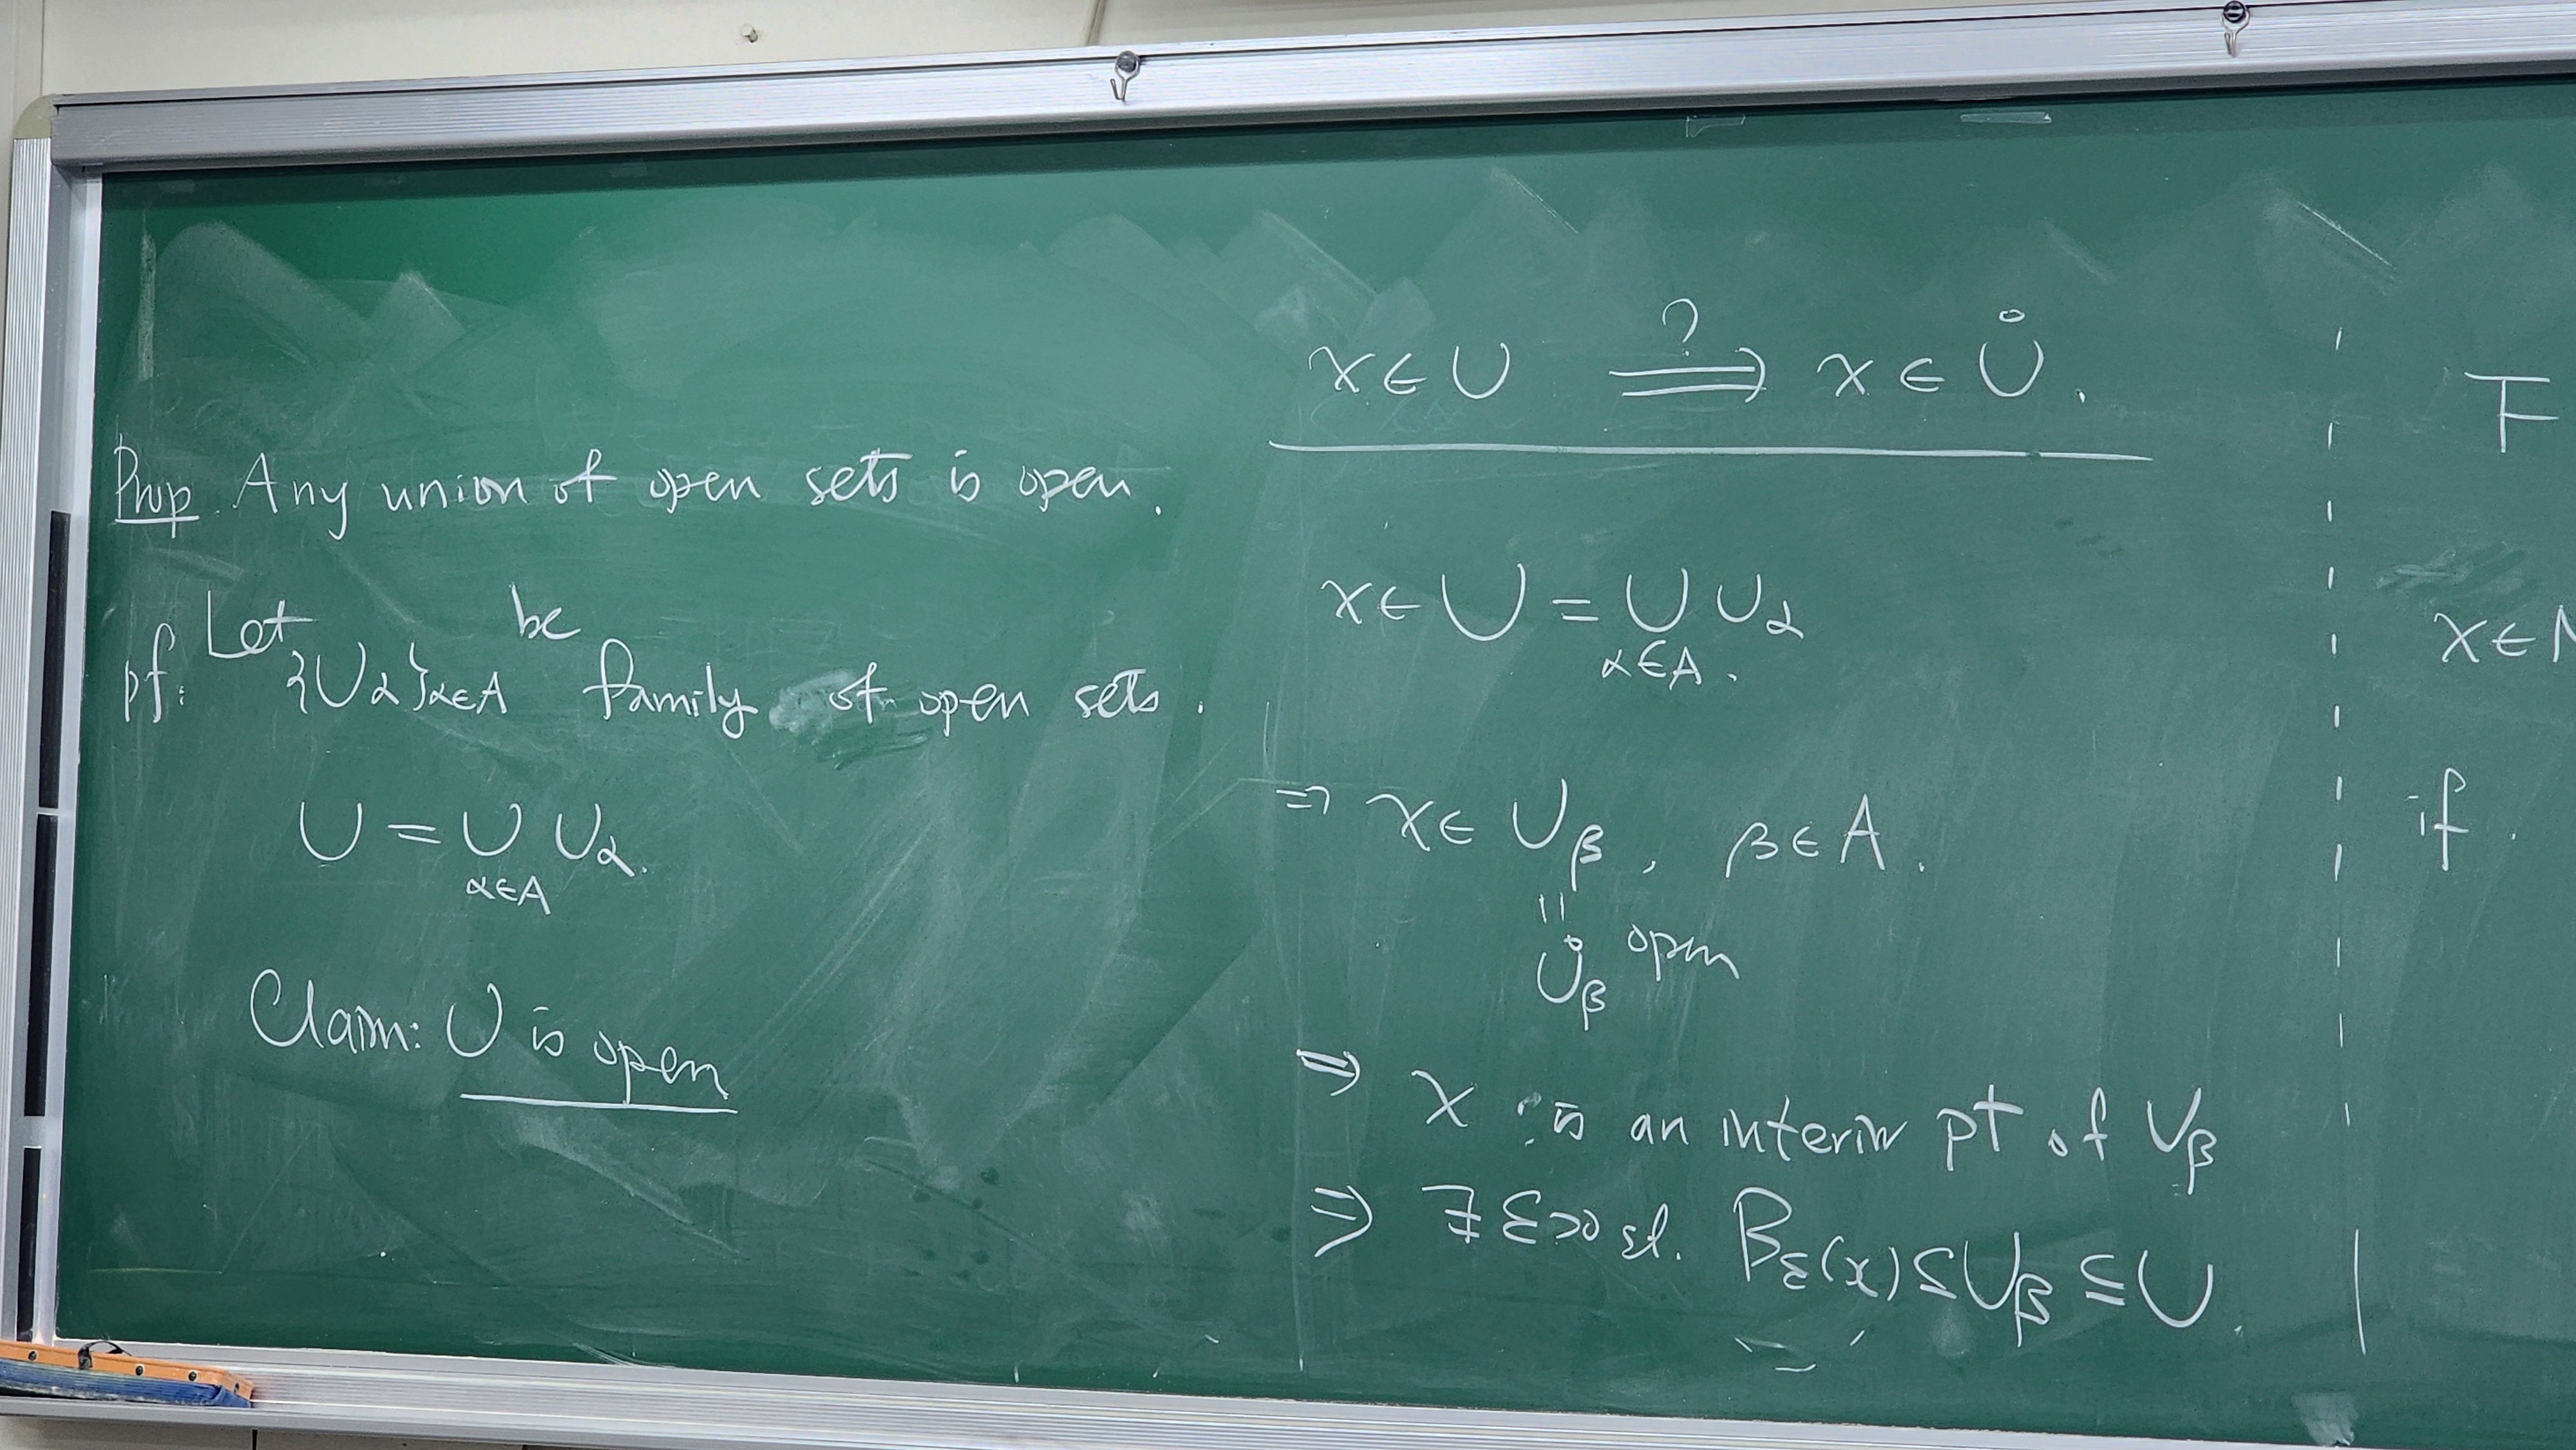 Prop. Any union of open sets is open.
pf: Let {U_α}_{α∈A} be family of open sets.
U = ∪_{α∈A} U_α.
Claim: U is open
x ∈ U ⟹? x ∈ Ů.
x ∈ U = ∪_{α∈A} U_α.
⇒ x ∈ U_β, β ∈ A.
||
Ů_β open
⇒ x is an interior pt of U_β
⇒ ∃ ε>0 st. B_ε(x) ⊆ U_β ⊆ U.
F
x ∈
if.